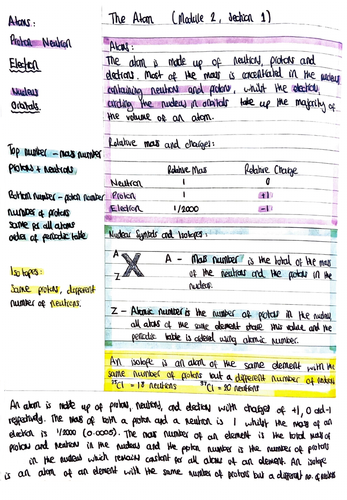 The Atom (Module 2, Section 1)
Atoms:
Proton Neutron
Electron
Nucleus
Orbitals
Atoms:
The atom is made up of neutrons, protons and
electrons. Most of the mass is concentrated in the nucleus
containing neutrons and protons, whilst the electrons
circling the nucleus in orbitals take up the majority of
the volume of an atom.
Relative mass and charges:
Relative Mass Relative Charge
Neutron 1 0
Proton 1 +1
Electron 1/2000 -1
Top number - mass number
protons + neutrons
Bottom number - proton number
number of protons
same for all atoms
order of periodic table
Isotopes:
Same protons, different
number of neutrons.
Nuclear Symbols and Isotopes:
A
X
Z
A - Mass number is the total of the mass
of the neutrons and the protons in the
nucleus.
Z - Atomic number is the number of protons in the nucleus
all atoms of the same element share this value and the
periodic table is ordered using atomic number.
An isotope is an atom of the same element with the
same number of protons but a different number of neutrons
³⁵Cl = 18 neutrons ³⁷Cl = 20 neutrons
An atom is made up of protons, neutrons, and electrons with charges of +1, 0 and -1
respectively. The mass of both a proton and a neutron is 1 whilst the mass of an
electron is 1/2000 (0.0005). The mass number of an element is the total mass of
protons and neutrons in the nucleus and the proton number is the number of protons
in the nucleus which remains constant for all atoms of an element. An isotope
is an atom of an element with the same number of protons but a different no. of neutrons